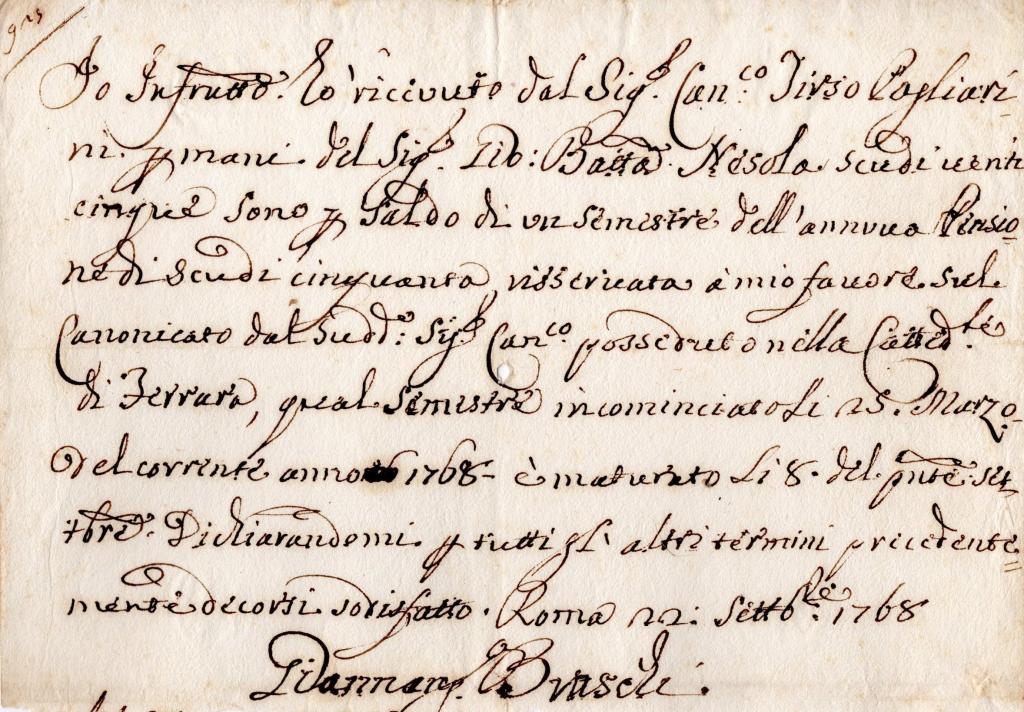 Io Infrutto. hò ricivuto dal Sig.r Can.co Tirso Pagliari
ni. p mani del Sig.r Gio: Batta. Nesola scudi venti
cinque sono p saldo di un semestre dell'annua Pensio
ne di scudi cinquanta risservata à mio favore sul
Canonicato dal sudd.o: Sig.r Can.co posseduto nella Catted.le
di Ferrara, qual semestre incominciato li 25. Marzo
del corrente anno 1768 - è maturato li 8. del pnte set
tbre. Dichiarandomi p tutti gl' altri termini precedente=
mente decorsi sodisfatto. Roma 22: Settb.re 1768
Giannang. Braschi.